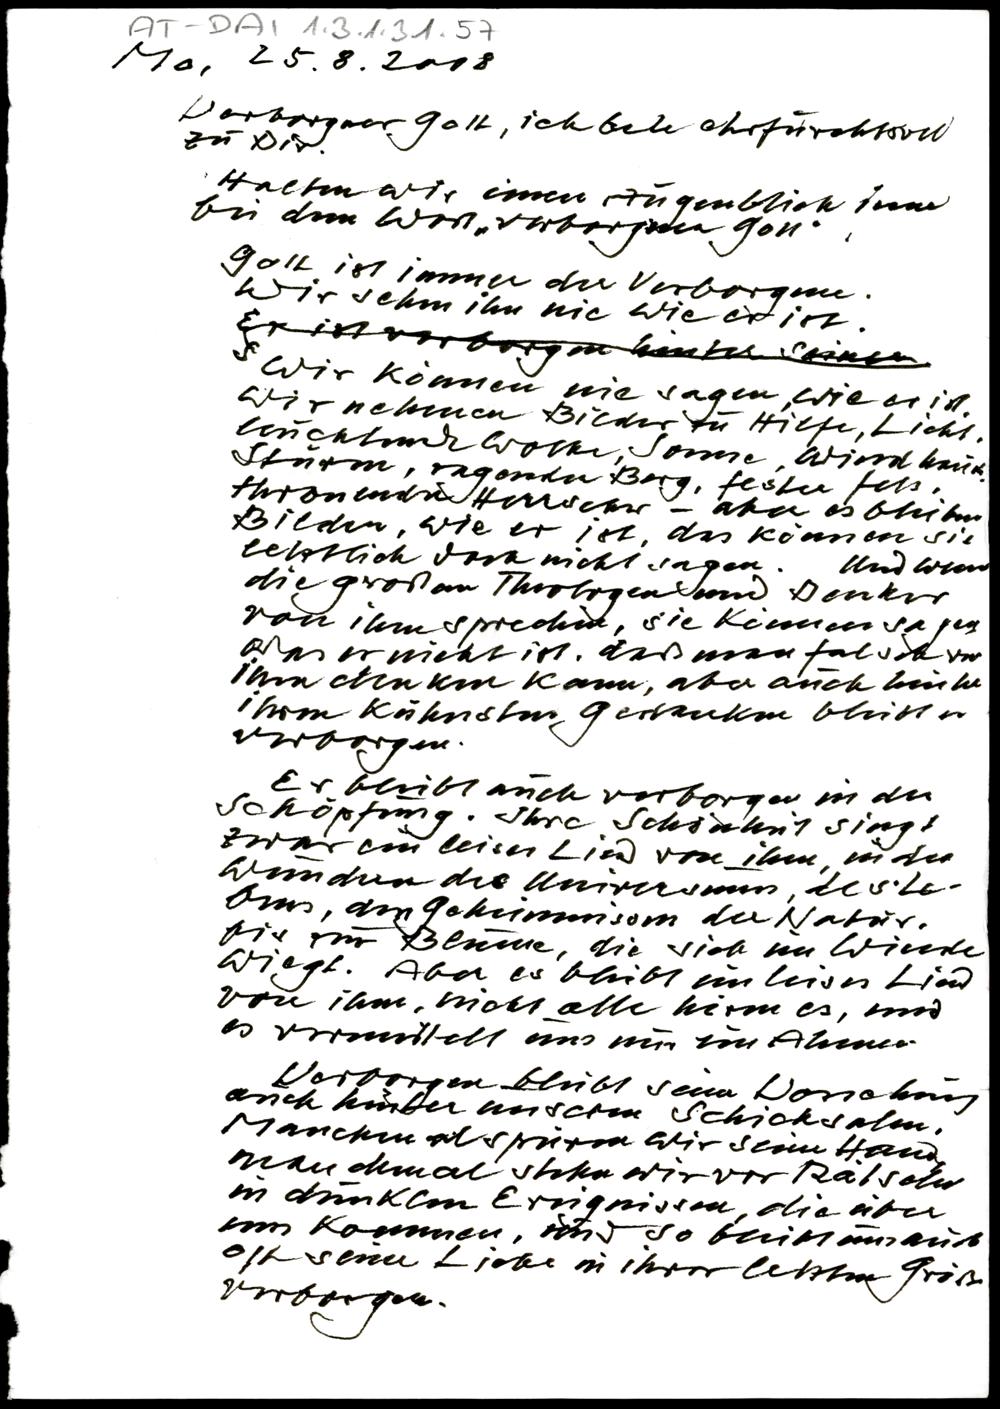 AT-DAI 1.3.1.31.57
Mo, 25.8.2008
Verborgner Gott, ich bete ehrfurchtsvoll
zu Dir.
Halten wir einen Augenblick inne
bei dem Wort „verborgener Gott“
Gott ist immer der Verborgene.
Wir sehen ihn nie wie er ist.
Er ist verborgen hinter seinen
Wir können nie sagen, wie er ist.
Wir nehmen Bilder zu Hilfe, Licht,
leuchtende Wolke, Sonne, Windhauch,
Sturm, ragender Berg, fester Fels,
thronender Herrscher – aber es bleiben
Bilder, wie er ist, das können sie
letztlich doch nicht sagen. Und wenn
die großen Theologen und Denker
von ihm sprechen, sie können sagen
was er nicht ist, daß man falsch von
ihm denken kann, aber auch hinter
ihren kühnsten Gedanken bleibt er
verborgen.
Er bleibt auch verborgen in der
Schöpfung. Ihre Schönheit singt
zwar ein leises Lied von ihm, in den
Wundern des Universums, des Le-
bens, den Geheimnissen der Natur,
bis zur Blume, die sich im Winde
wiegt. Aber es bleibt ein leises Lied
von ihm, nicht alle hören es, und
es vermittelt uns nur ein Ahnen.
Verborgen bleibt seine Vorsehung
auch hinter unserem Schicksalen.
Manchmal spüren wir seine Hand,
manchmal stehn wir vor Rätseln
in dunklen Ereignissen, die über
uns kommen, und so bleibt uns auch
oft seine Liebe in ihrer letzten Größe
verborgen.